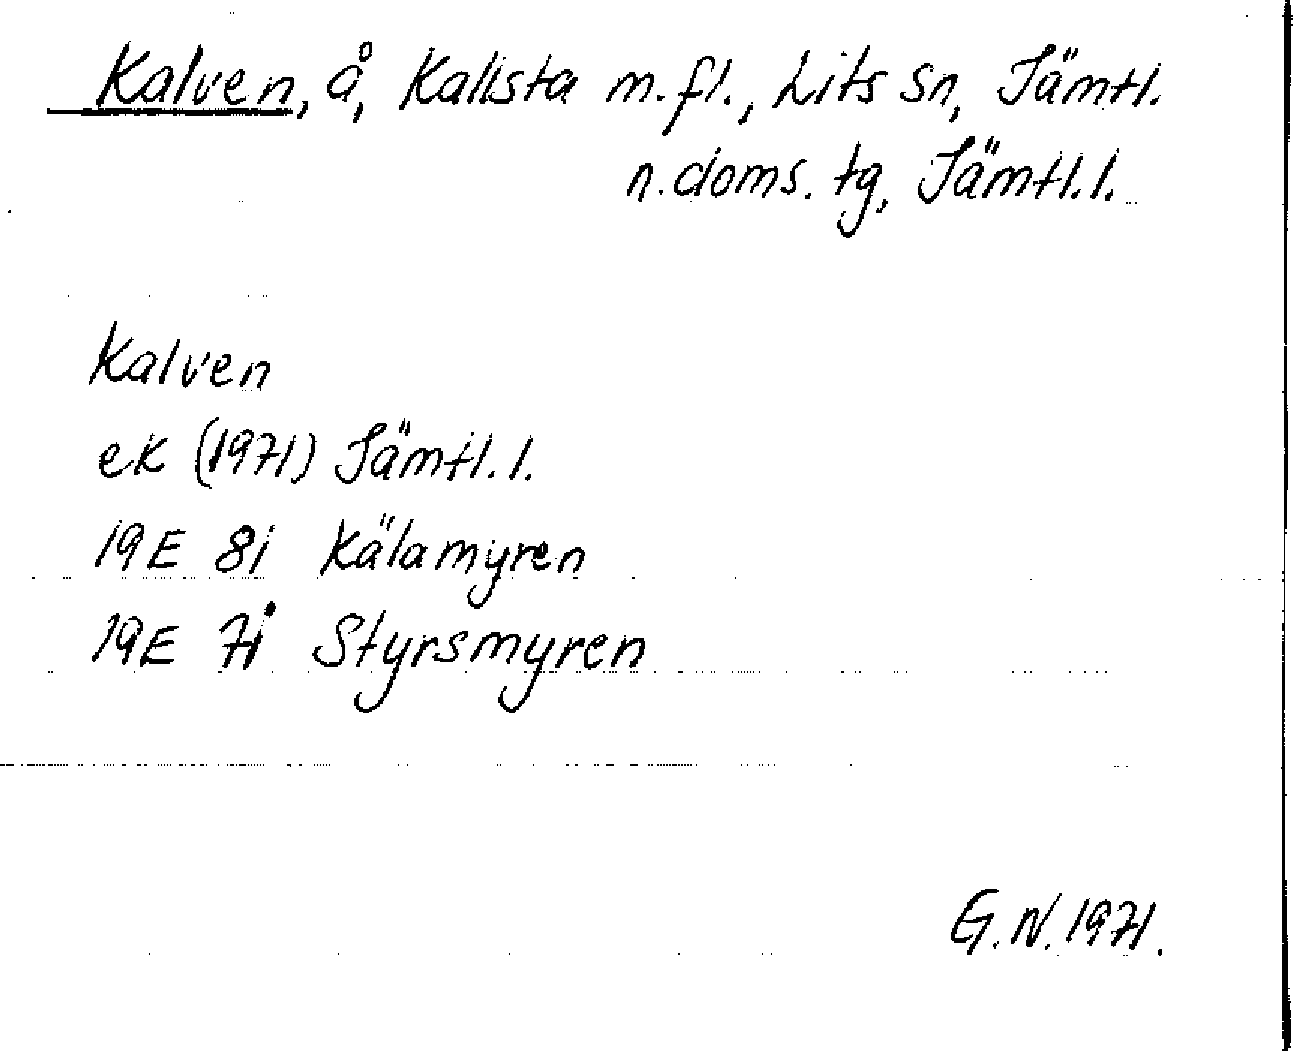 Kalven, å, Kallsta m.fl., Lits sn, Jämtl.
n. doms. tg, Jämtl. l.
Kalven
ek (1971) Jämtl. l.
19E 8i Kälamyren
19E 7i Styrsmyren
G.N. 1971.